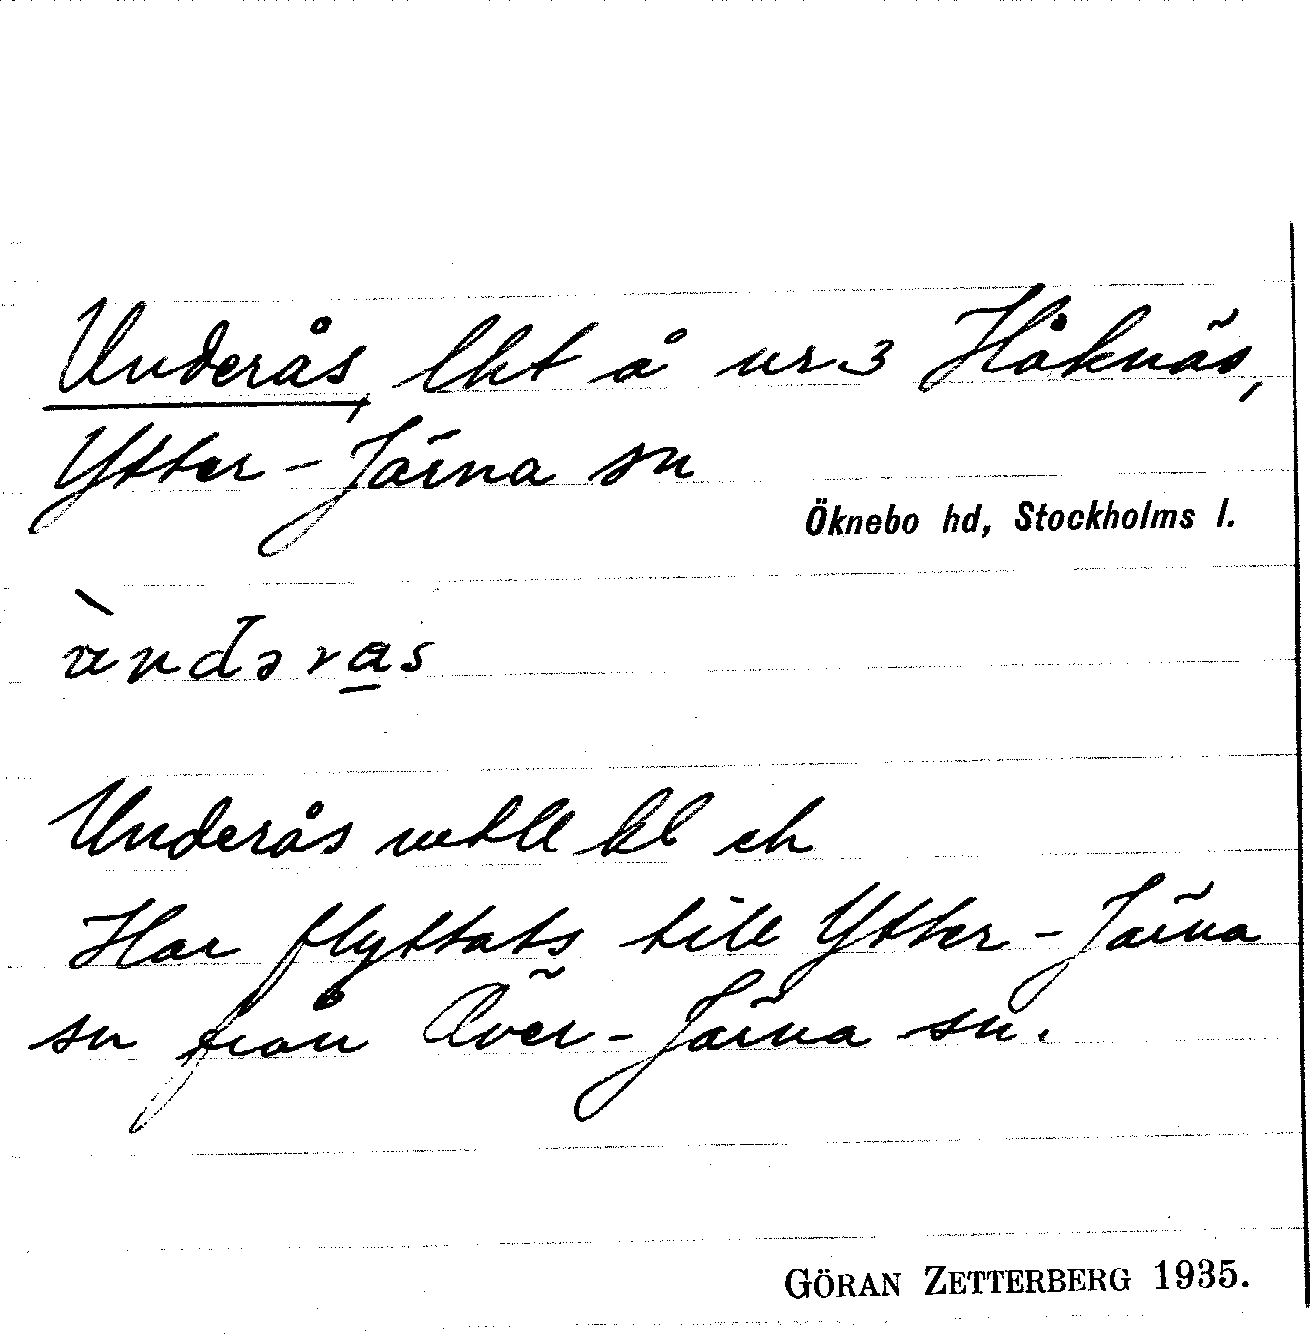 Underås, lht å nr 3 Håknäs,
Ytter-Järna sn
Öknebo hd, Stockholms l.
Underås kl ek
Har flyttats till Ytter-Järna
sn från Över-Järna sn.
GÖRAN ZETTERBERG 1935.